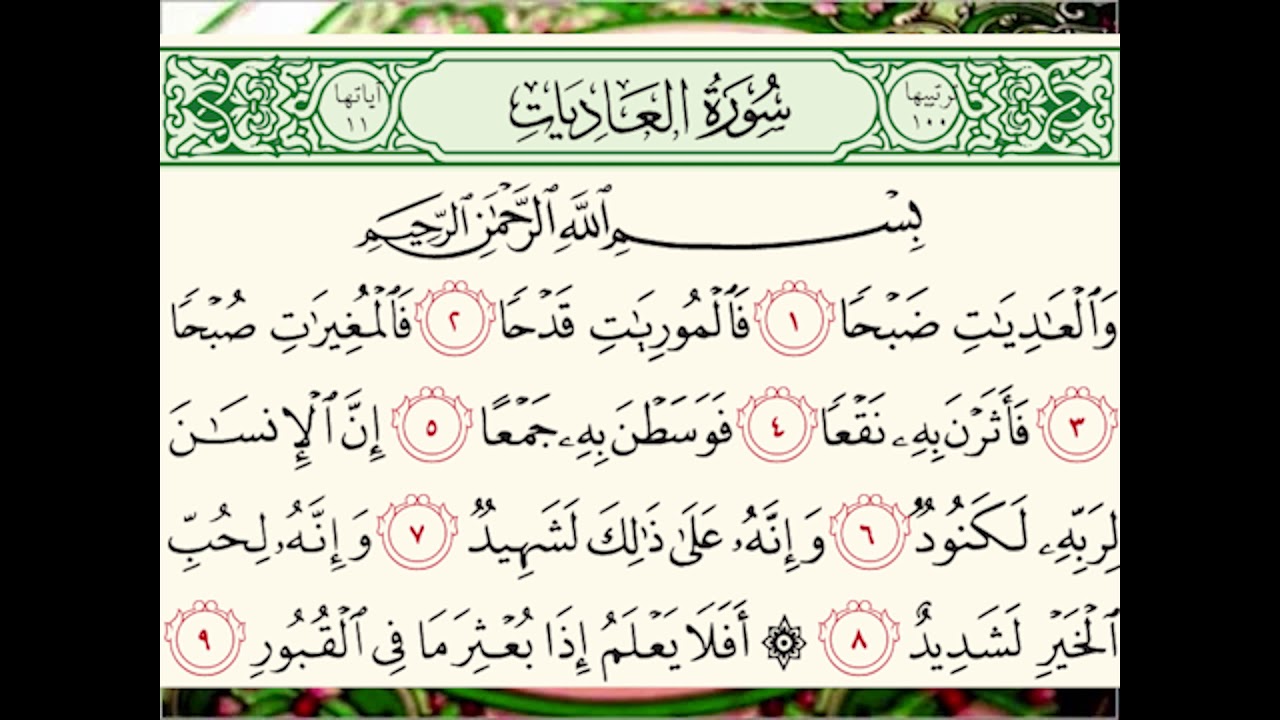 ترتيبها
١٠٠
سُورَةُ العَادِيَاتِ
آياتها
١١
بِسْمِ ٱللَّهِ ٱلرَّحْمَٰنِ ٱلرَّحِيمِ
وَٱلْعَٰدِيَٰتِ ضَبْحًا ١ فَٱلْمُورِيَٰتِ قَدْحًا ٢ فَٱلْمُغِيرَٰتِ صُبْحًا
٣ فَأَثَرْنَ بِهِۦ نَقْعًا ٤ فَوَسَطْنَ بِهِۦ جَمْعًا ٥ إِنَّ ٱلْإِنسَٰنَ
لِرَبِّهِۦ لَكَنُودٌ ٦ وَإِنَّهُۥ عَلَىٰ ذَٰلِكَ لَشَهِيدٌ ٧ وَإِنَّهُۥ لِحُبِّ
ٱلْخَيْرِ لَشَدِيدٌ ٨ ۞ أَفَلَا يَعْلَمُ إِذَا بُعْثِرَ مَا فِى ٱلْقُبُورِ ٩